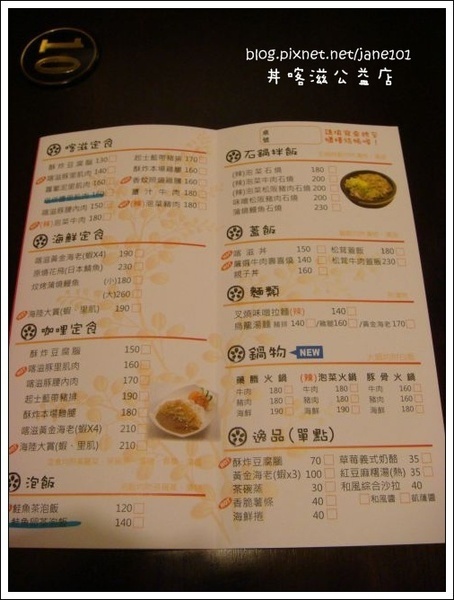 blog.pixnet.net/jane101
丼喀滋公益店
10
喀滋定食
酥炸豆腐腦 130
喀滋豚里肌肉 160
喀滋豚腰內肉 170
泡菜牛肉 180
起士藍帶豬排 170
酥炸本場雞腿 160
160
醬汁牛肉 180
(辣)泡菜豬肉 180
海鮮定食
喀滋黃金海老(蝦X4) 190
230
炊烤蒲燒鰻魚 (小)180
(大)260
海陸大賞(蝦、里肌) 190
咖哩定食
酥炸豆腐腦 150
喀滋豚里肌肉 160
喀滋豚腰內肉 170
起士藍帶豬排 190
酥炸本場雞腿 180
喀滋黃金海老(蝦X4) 210
海陸大賞(蝦、里肌) 210
泡飯
鮭魚茶泡飯 120
140
桌號
石鍋拌飯
(辣)泡菜石燒 180
(辣)泡菜牛肉石燒 180
(辣)泡菜松阪豬肉石燒 180
味噌松阪豬肉石燒 180
蒲燒鰻魚石燒 180
蓋飯
喀滋丼 150
牛肉壽喜燒 140
親子丼 160
松茸蓋飯 180
松茸牛肉蓋飯 230
麵類
叉燒味噌拉麵(辣) 140
烏龍湯麵 豬排 140 /雞腿160 /黃金海老170
鍋物 NEW
火鍋
牛肉 160
豬肉 160
海鮮 190
(辣)泡菜火鍋
牛肉 180
豬肉 180
海鮮 190
豚骨火鍋
牛肉 180
豬肉 180
海鮮 190
逸品(單點)
酥炸豆腐腦 70
黃金海老(蝦x3) 100
茶碗蒸 30
香脆薯條 40
海鮮捲 40
草莓義式奶酪 35
紅豆麻糬湯(熱) 35
和風綜合沙拉 40
和風醬